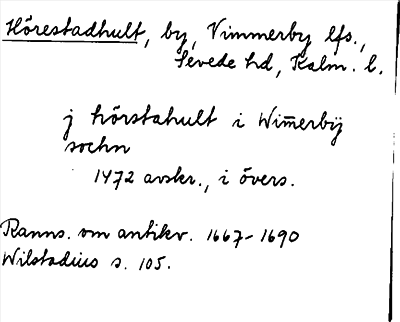 Hörestadhult, by, Vimmerby lfs.,
Sevede hd, Kalm. l.
j hörstahult i Wim̄erbÿ
sochn
1472 avskr., i övers.
Ranns. om antikv. 1667-1690
Wilstadius s. 105.